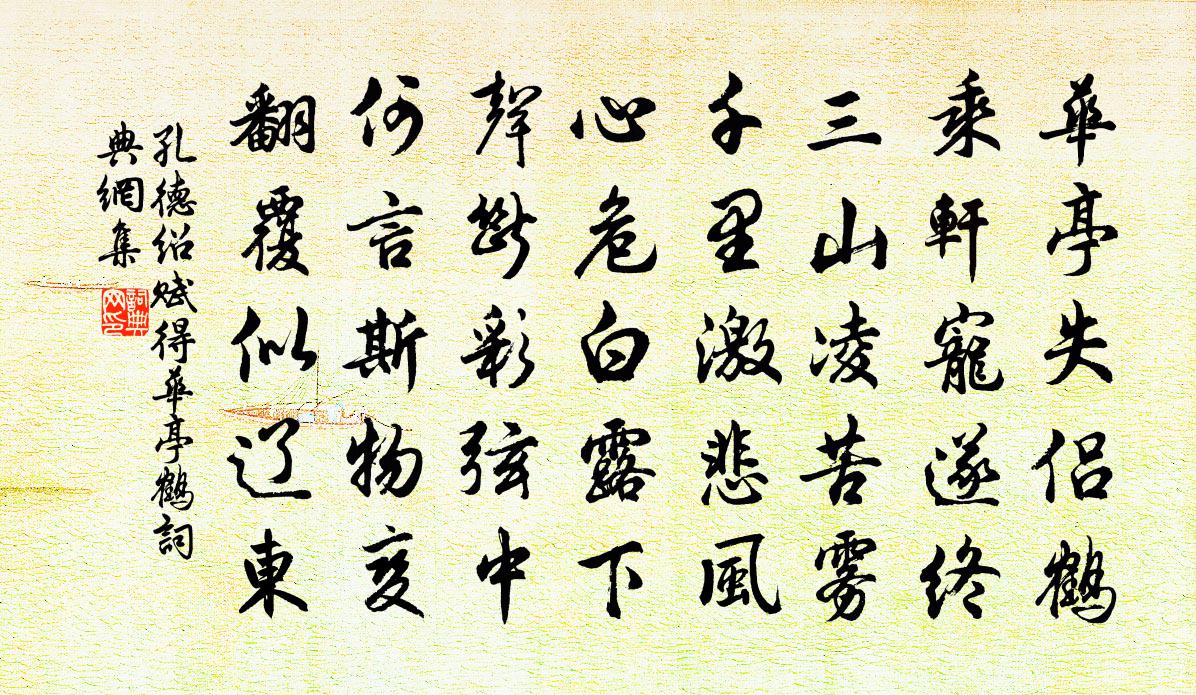 華亭失侶鶴
乘軒寵遂終
三山凌苦雾
千里激悲風
心危白露下
聲斷彩弦中
何言斯物变
翻覆似辽東
孔德绍赋得華亭鶴詞
典網集
詞典網印